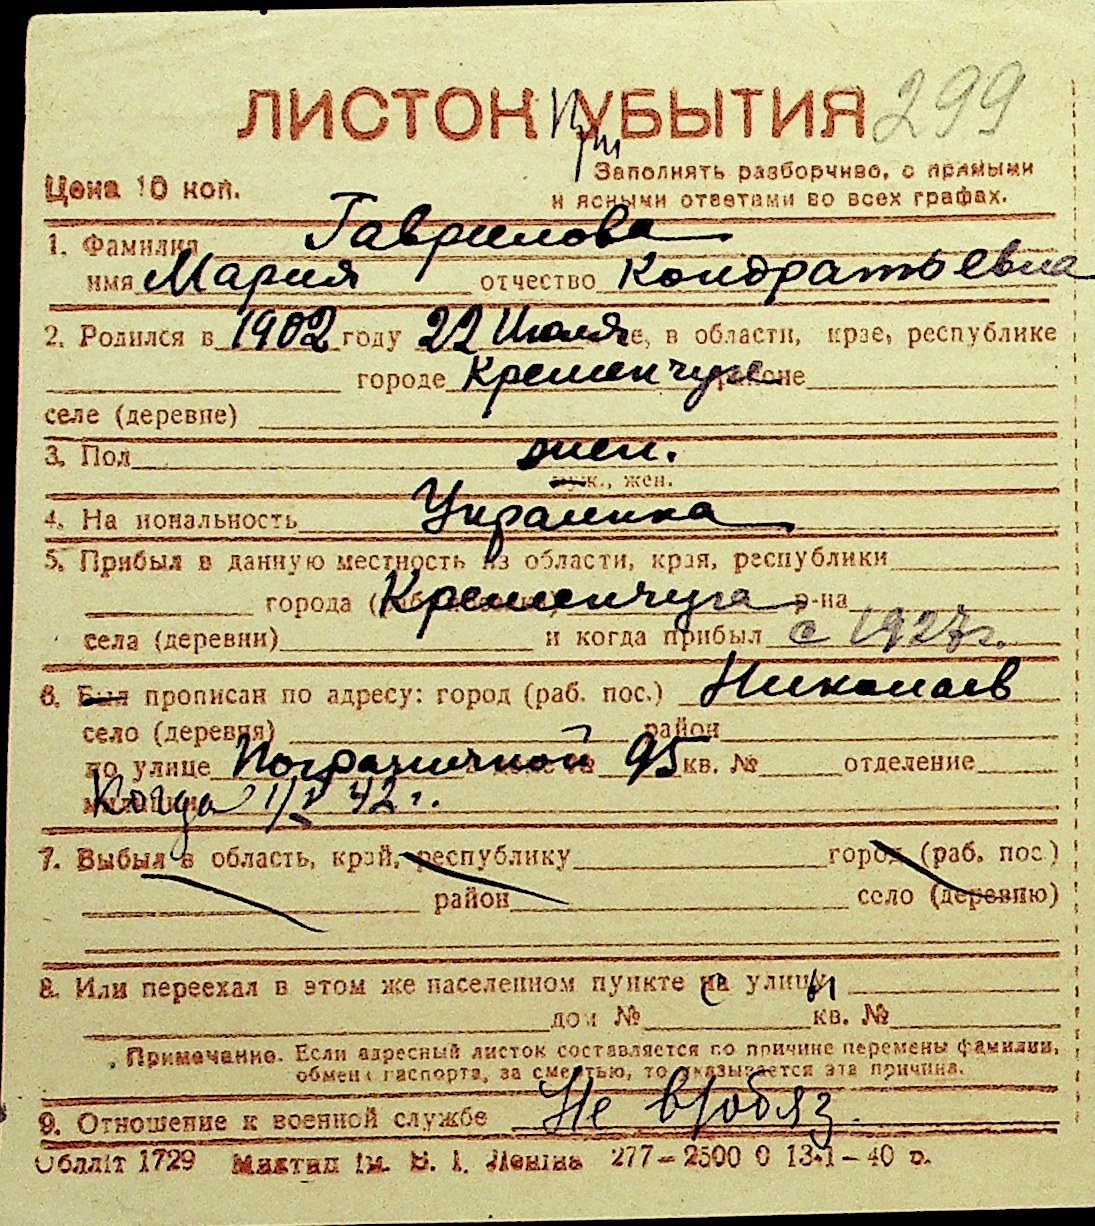 ЛИСТОК УБЫТИЯ 299
При
Цена 10 коп.
Заполнять разборчиво, с прямыми
и ясными ответами во всех графах.
1. Фамилия Гаврилова
имя Мария отчество Кондратьевна
2. Родился в 1902 году 22 Июля е, в области, крае, республике
городе Кременчуге районе
селе (деревне)
3. Пол жен.
муж., жен.
4. На иональность Украинка
5. Прибыл в данную местность из области, края, республики
города ( Кременчуга р-на
села (деревни) и когда прибыл с 1927г.
6. Был прописан по адресу: город (раб. пос.) Николаев
село (деревня) район
по улице Пограничной 95 кв. № отделение
милиции Когда 1/V 42 г.
7. Выбыл в область, край, республику город (раб. пос.)
район село (деревню)
8. Или переехал в этом же населенном пункте с улицы
дом № кв. №
Примечание. Если адресный листок составляется по причине перемены фамилии,
обмена паспорта, за смертью, то указывается эта причина.
9. Отношение к военной службе Не в/обяз.
Облліт 1729 Ім. В. І. Леніна 277—2500 0 13-1—40 р.